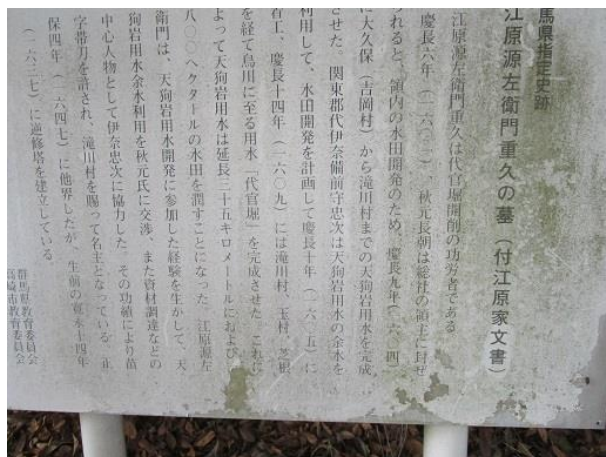 馬県指定史跡
江原源左衛門重久の墓（付江原家文書）
江原源左衛門重久は代官堀開削の功労者である
慶長六年（一六〇一）、秋元長朝は総社の領主に封ぜ
られると、領内の水田開発のため、慶長九年（一六〇四）
に大久保（吉岡村）から滝川村までの天狗岩用水を完成
させた。関東郡代伊奈備前守忠次は天狗岩用水の余水を
利用して、水田開発を計画して慶長十年（一六〇五）に
着工、慶長十四年（一六〇九）には滝川村、玉村、芝根
を経て烏川に至る用水「代官堀」を完成させた。これに
よって天狗岩用水は延長二十五キロメートルにおよび
八〇〇ヘクタールの水田を潤すことになった 江原源左
衛門は、天狗岩用水開発に参加した経験を生かして、天
狗岩用水余水利用を秋元氏に交渉、また資材調達などの
中心人物として伊奈忠次に協力した。その功績により苗
字帯刀を許され、滝川村を賜って名主となっている 正
保四年（一六四七）に他界したが、生前の寛永十四年
（一六三七）に逆修塔を建立している。
群馬県教育委員会
高崎市教育委員会